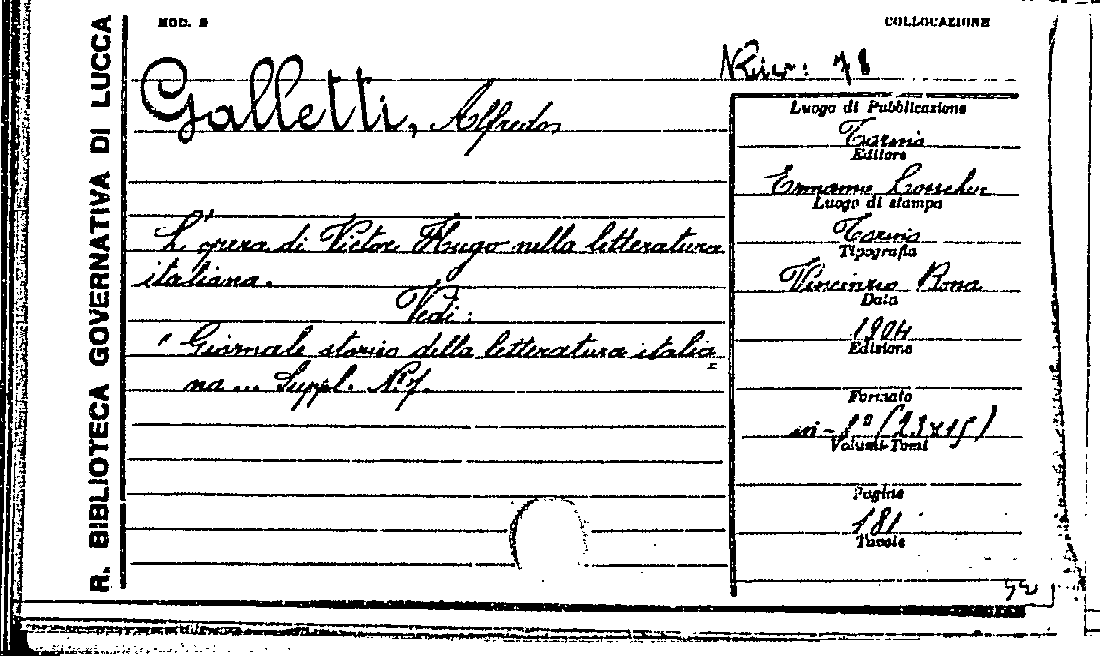 R. BIBLIOTECA GOVERNATIVA DI LUCCA
MOD. 2
COLLOCAZIONE
Galletti, Alfredo
L'opera di Victor Hugo nella letteratura
italiana.
Vedi:
" Giornale storico della letteratura italia
na ... Suppl. N. 7.
Luogo di Pubblicazione
Torino
Editore
Ermanno Loescher
Luogo di stampa
Torino
Tipografia
Vincenzo Bona
Data
1904
Edizione
Formato
in-8º (23x15)
Volumi-Tomi
Pagine
181
Tavole